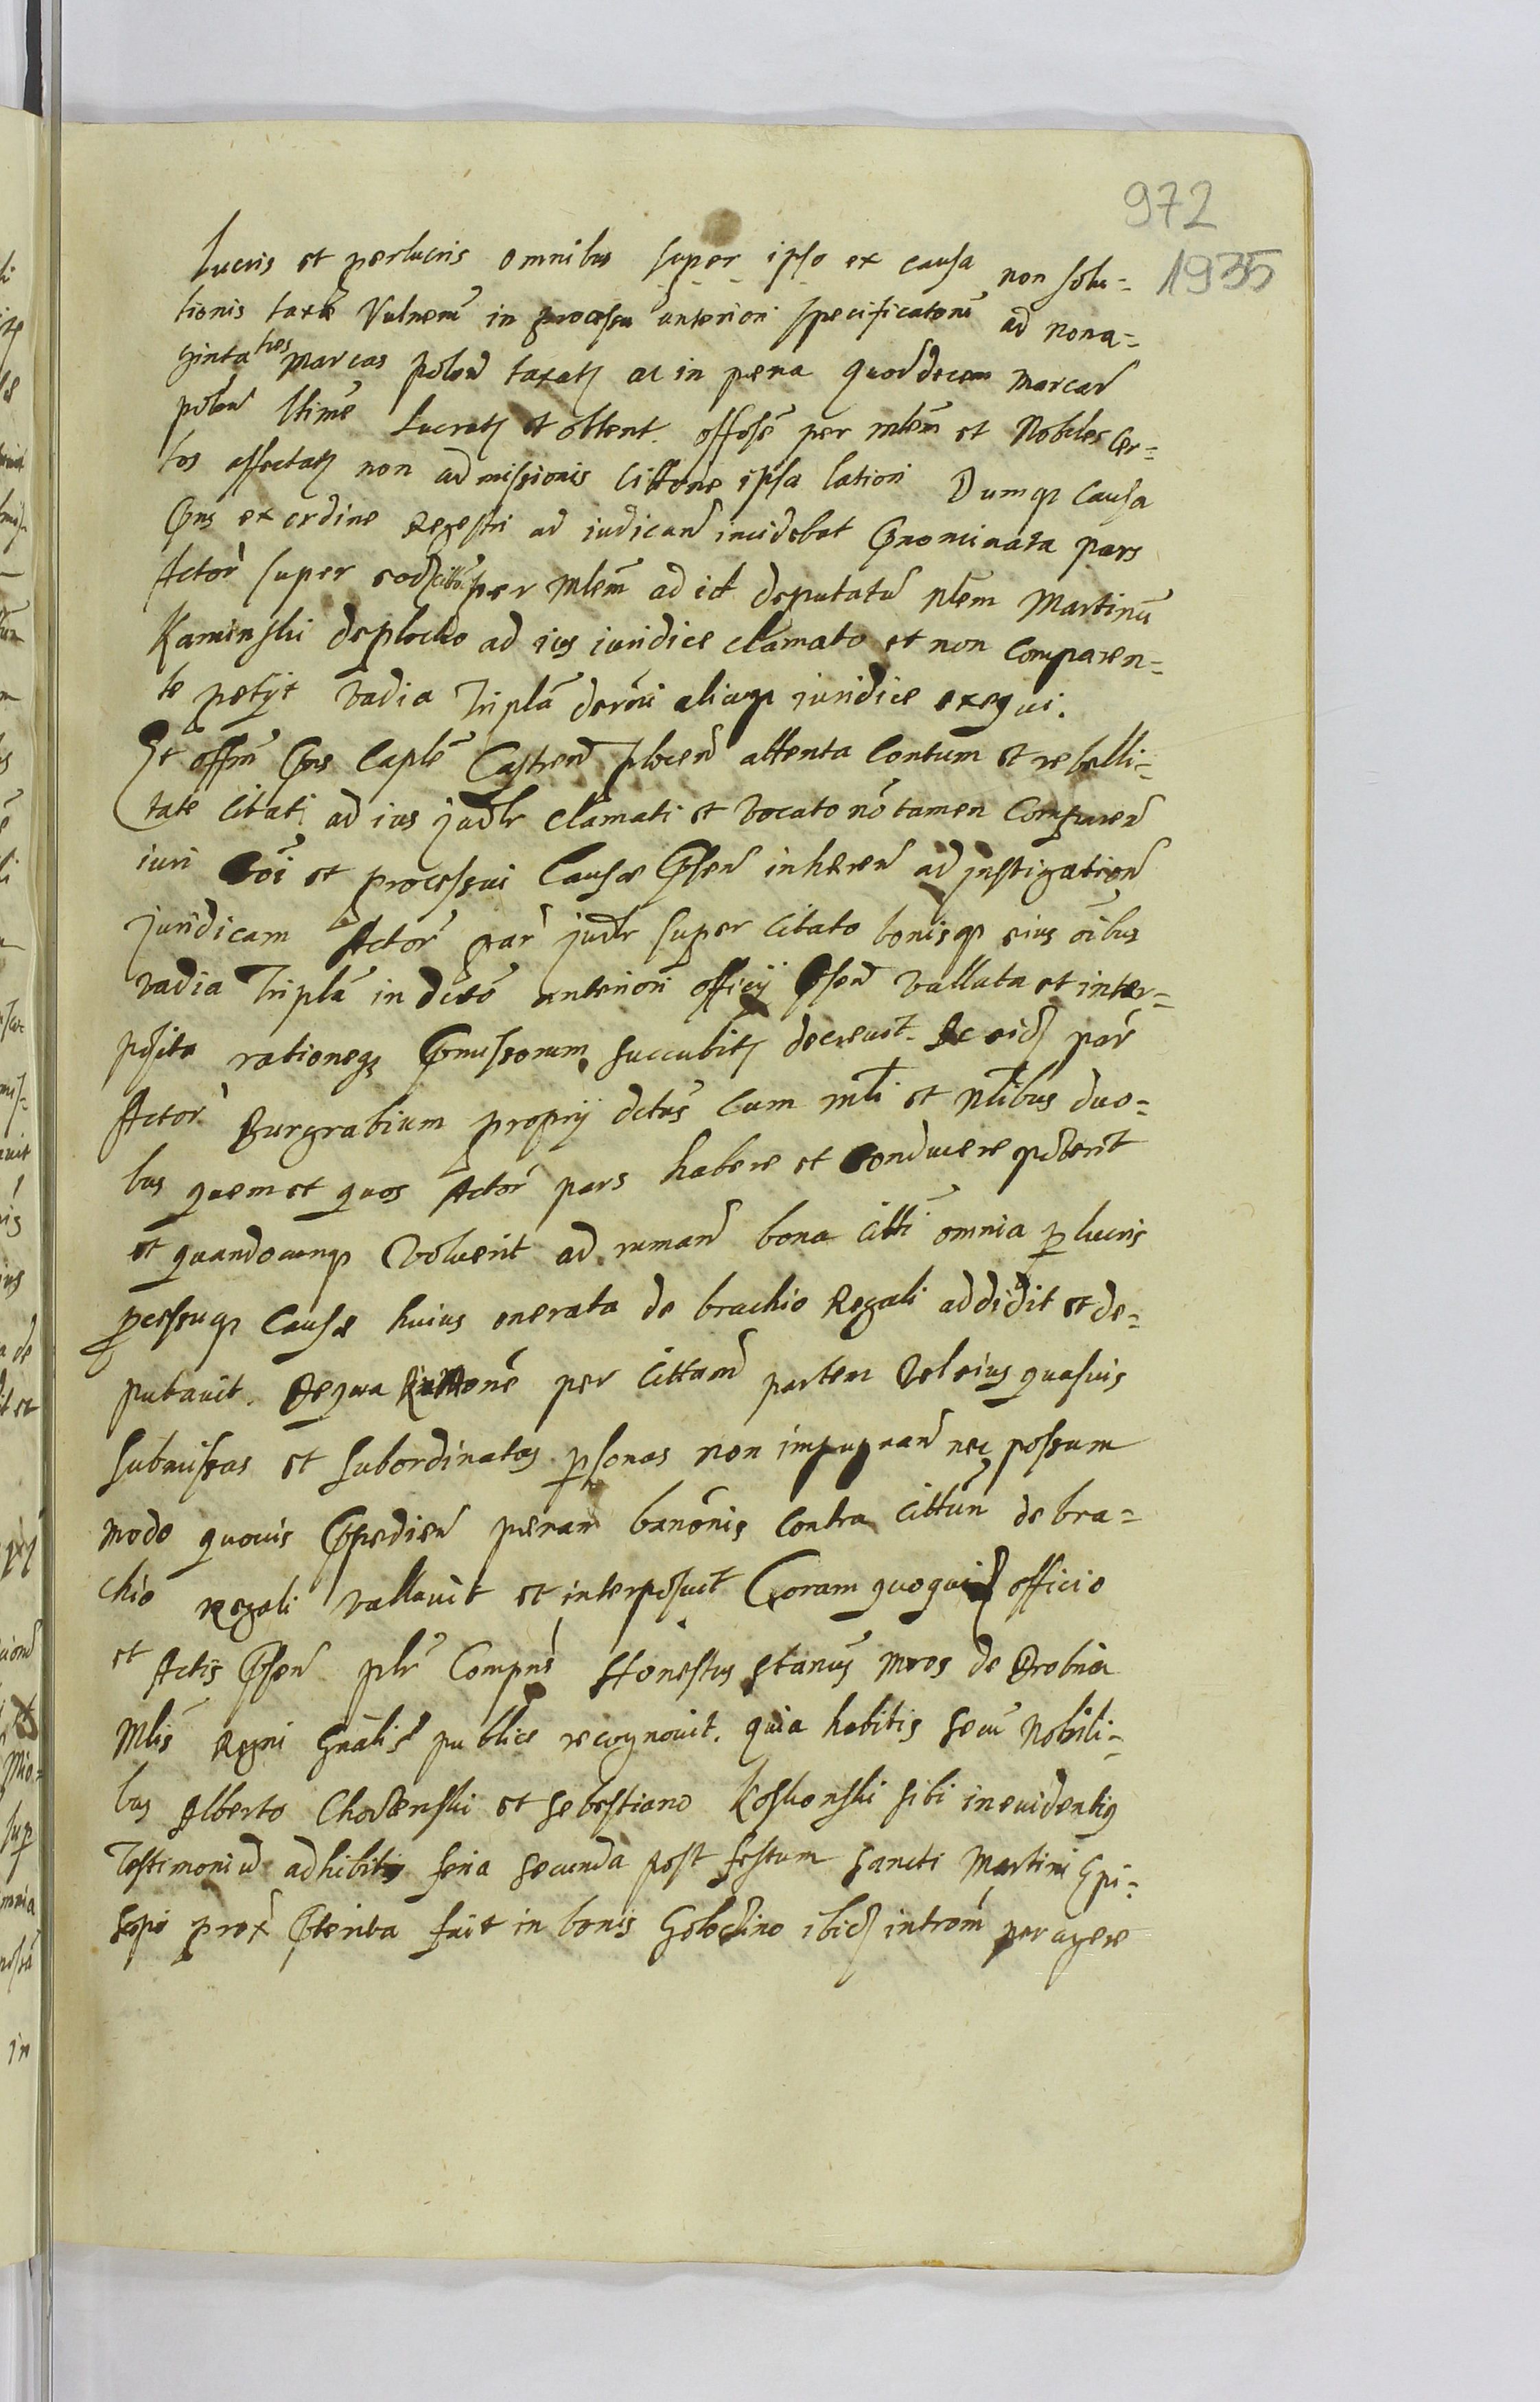 972
1935
lucris et perlucris omnibus super ipso ex causa non solu=
tionis taxæ Vulnerũ in processu anteriori specificatorũ ad nona=
ginta tres Marcas polon taxatȝ ac in pena quordecem marcar
polon ltimẽ lucratȝ et obtent. offose per mlem et Nobiles Cer=
tos affectatȝ non admissionis cittone ipsa latiori Dumqȝ Causa
Pñs ex ordine Regestri ad iudicand incidebat Pnominata pars
Actor super eodȝ citto per Mlem ad id deputatũ Nlem Martinũ
Kaminski deplocko ad ius iuridice clamato et non Comparen=
te petijt vadia triplã decerni aliaqȝ iuridice exequi.
Et offm Pñs Caplẽ Castren plocen attenta Contum et rebelli=
tate Citati ad ius judlr clamati et vocato nõ tamen Comparen
iuri Coi et processui Causæ Psen inheren ad justigation
juridicam Actor par judlr super citato bonisqȝ eius oibus
vadia triplã in decto anteriori officij Psen vallata et inter=
posita rationeqȝ Pmissorum succubitȝ decrevit. Ac eidȝ par
Actor Burgrabium proprij dctus cum mli et Nlibus duo=
bus quem et quos Actor pars habere et Conducere poterit
et quandocunqȝ Voluerit ad ruman bona citti omnia p lucris
pcessuqȝ Causæ huius onerata de brachio Regali addidit et de=
putavit. De qua per cittam partem Vel eius quasvis
submissas et subordinatas psonas non impugnan nec possum
modo quovis Ppedien penam banõnis Contra cittum de bra=
chio regali vallavit et interposuit Coram quoqȝ eidȝ officio
et Actis Psen plr Compns Honestus Stanũs mros de Drobnia
Mlis Regni Gnalis publice recognovit. quia habitis secũ Nobili=
bus Alberto Chodzenski et Sebestiano Koskonski sibi in evidentiȝ
Testimoniũ adhibitis feria secunda post festum Sancti Martini Epi=
scopi prox Pterita fuit in bonis Golodzino ibidȝ introm peragere